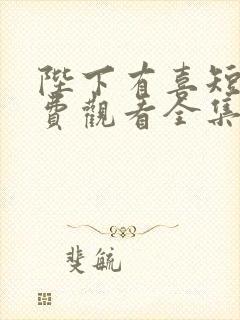 陛下有喜短
費觀看全集
斐毓